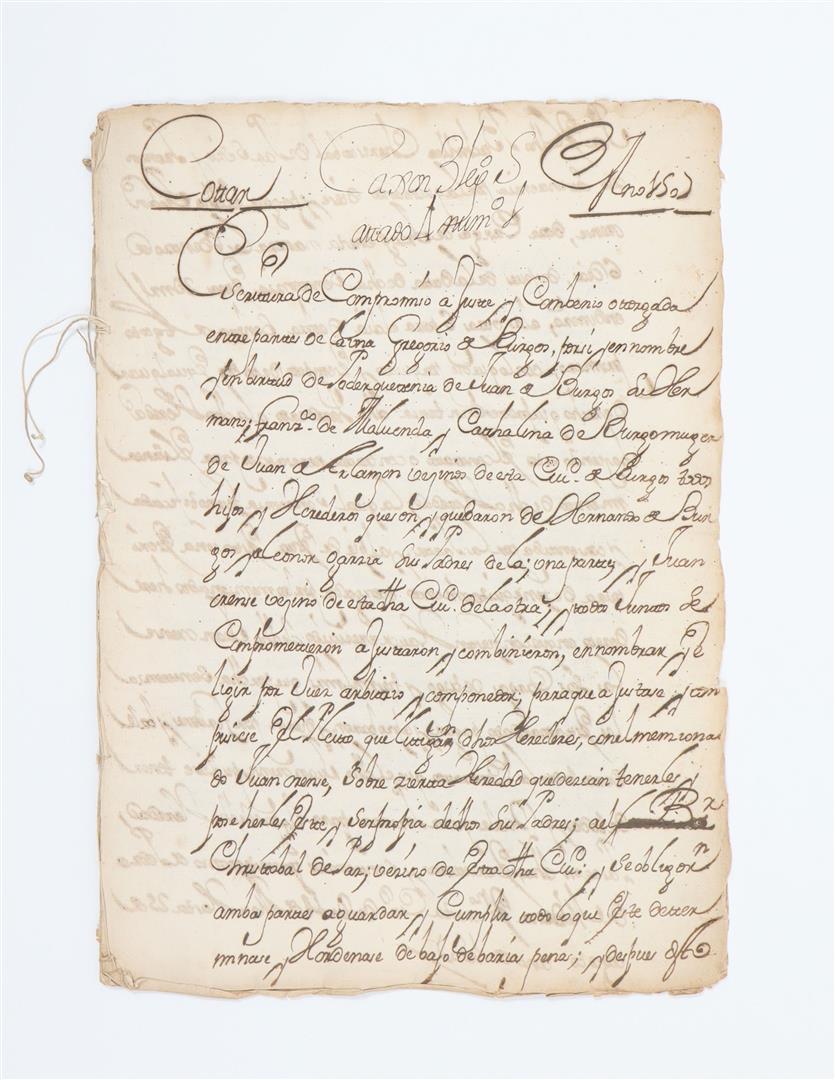 Cottar Caxon 3 legº 5 Año 150
atado 4 numº 1
Escritura de Compromiso a Juste y Combenio otorgada
entre partes de la una Gregorio de Burgos, porsi y en nombre
y en birtud de Poder que tenia de Juan de Burgos su Her
mano; Franzco. de Maluenda y Cathalina de Burgo muger
de Juan de Arlanzon vezinos de esta Ciud. de Burgos todos
hijos y Herederos que son y quedaron de Hernando de Bur
gos y Leonor garzia sus Padres de la; una parte; y Juan
orense vezino de esta dha Ciud. de la otra; y todos Juntos se
Comprometieron a Justaron y combinieron, en nombrar y e
ligir por Juez arbitrio y componedor; para que a Justase y com
pusiese El Pleito, que litigan dhos Herederos, con el menziona
do Juan orense, sobre zierta Heredad que dezian tenerles y
poseherles este y ser propia de dhos sus Padres; a el Br.
Christobal de Paz; vezino de Esta dha Ciud: y se obligaron
ambas partes a guardar y Cumplir todo lo que Este deter
minase y Hordenase de bajo de barias penas; y despues de